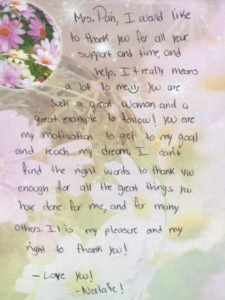 Mrs. Pain, I would like
to thank you for all your
support and time, and
help. It really means
a lot to me. You are
such a great woman and a
great example to follow! you are
my motivation to get to my goal
and reach my dream. I can't
find the right words to thank you
enough for all the great things you
have done for me, and for many
others. It is my pleasure and my
right to thank you!
- Love you!
- Natalie!